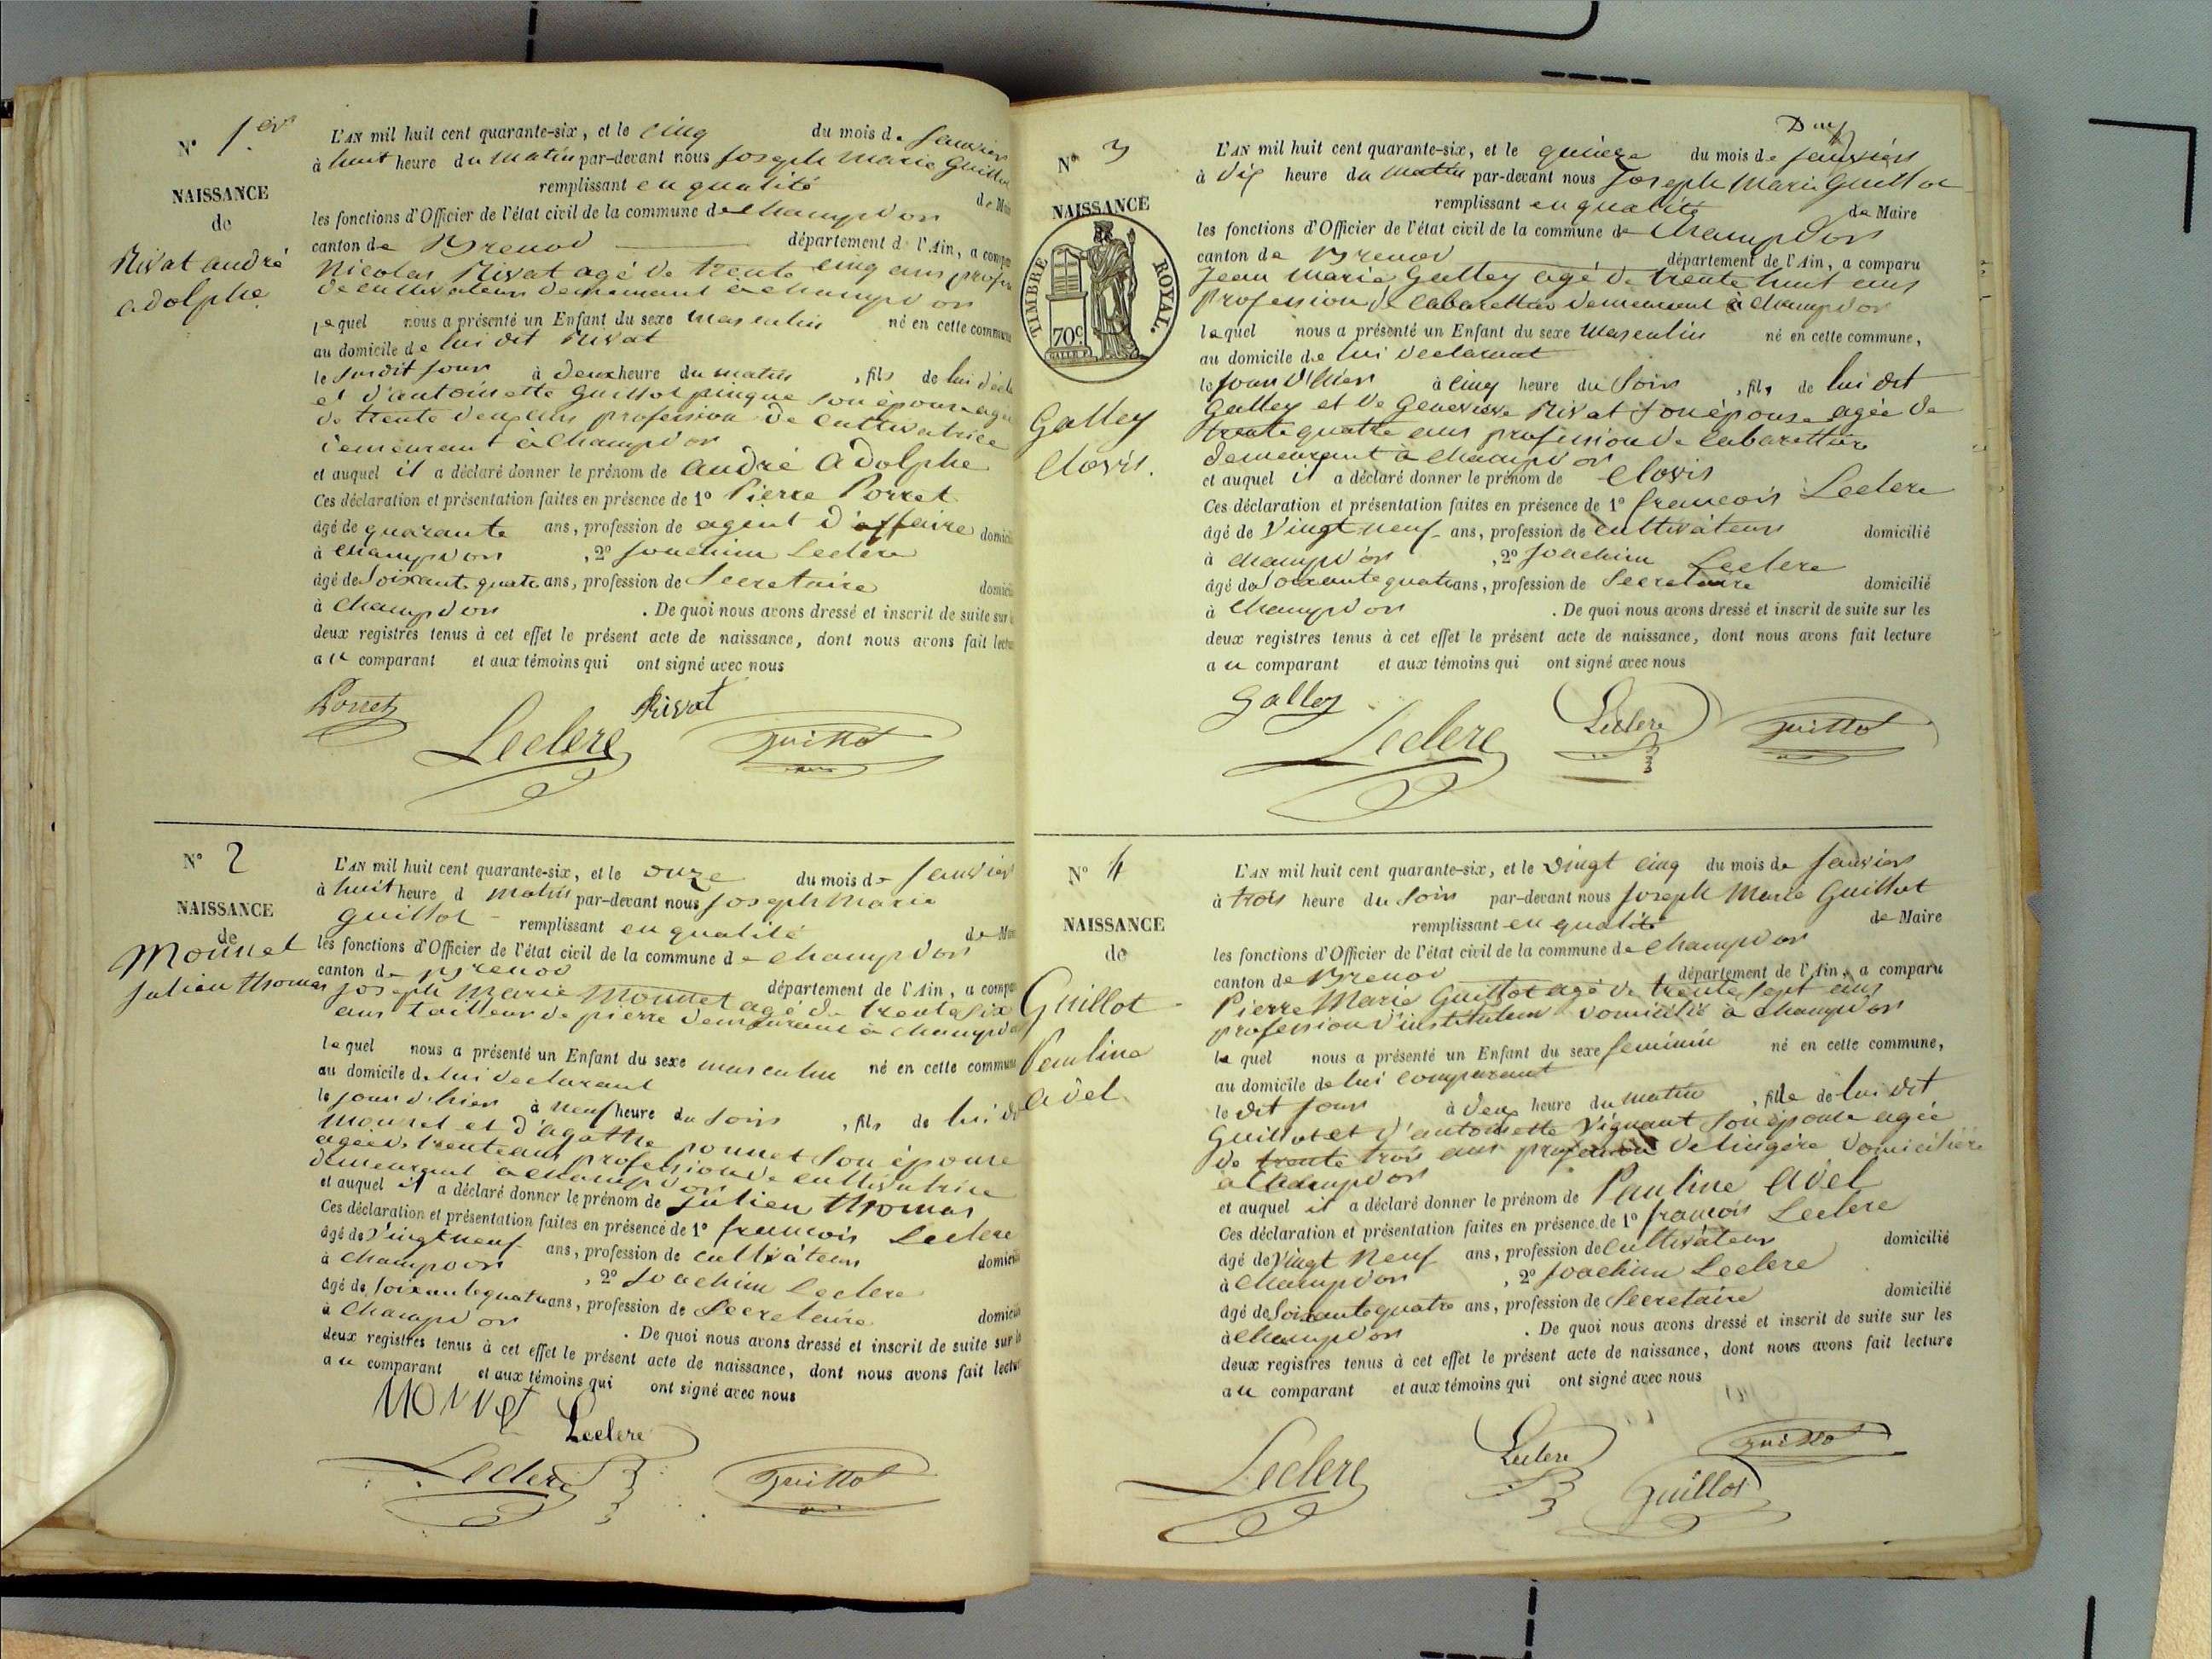 N° 1er
NAISSANCE
de
Rivat andré
adolphe
L'AN mil huit cent quarante-six, et le cinq du mois de Janvier
à huit heure du matin par-devant nous Joseph Marie Guillot
remplissant en qualité de Maire
les fonctions d'Officier de l'état civil de la commune de champdor
canton de Brenod département de l'Ain, a comparu
Nicolas Rivat agé de trente cinq ans profession
de cultivateur demeurant à champdor
lequel nous a présenté un Enfant du sexe masculin né en cette commune
au domicile de lui dit Rivat
le susdit jour à deux heure du matin, fils de lui décla
et d'antoinette Guillot pingue son épouse agée
de trente deux ans profession de cultivatrice
demeurant à champdor
et auquel il a déclaré donner le prénom de andré adolphe
Ces déclaration et présentation faites en présence de 1° Pierre Porret
âgé de quarante ans, profession de agent d'affaire domicilié
à champdor, 2° Joachim Leclere
âgé de Soixante quatre ans, profession de Secretaire domicilié
à champdor. De quoi nous avons dressé et inscrit de suite sur les
deux registres tenus à cet effet le présent acte de naissance, dont nous avons fait lecture
au comparant et aux témoins qui ont signé avec nous
Porret Rivat
Leclere Guillot
N° 2
NAISSANCE
de
Monnet
Julien thomas
L'AN mil huit cent quarante-six, et le onze du mois de Janvier
à huit heure d matin par-devant nous Joseph Marie
guillot remplissant en qualité de Maire
les fonctions d'Officier de l'état civil de la commune de champdor
canton de Brenod département de l'Ain, a comparu
Joseph Marie Monnet agé de trente six
ans tailleur de pierre demeurant à champdor
lequel nous a présenté un Enfant du sexe masculin né en cette commune
au domicile de lui declarant
le jour d'hier à neuf heure du soir, fils de lui dit
monnet et d'agathe ponnet son épouse
agée de trente ans profession de cultivatrice
demeurant à champdor
et auquel il a déclaré donner le prénom de Julien thomas
Ces déclaration et présentation faites en présence de 1° francois Leclere
âgé de Vingt neuf ans, profession de cultivateur domicilié
à champdor, 2° Joachim Leclere
âgé de Soixante quatre ans, profession de Secretaire domicilié
à champdor. De quoi nous avons dressé et inscrit de suite sur les
deux registres tenus à cet effet le présent acte de naissance, dont nous avons fait lecture
au comparant et aux témoins qui ont signé avec nous
Monnet Leclere
Leclere Guillot
N° 3
NAISSANCE
TIMBRE ROYAL.
70c
Galley
Clovis.
L'AN mil huit cent quarante-six, et le quinze du mois de janvier
à dix heure du matin par-devant nous Joseph Marie Guillot
remplissant en qualité de Maire
les fonctions d'Officier de l'état civil de la commune de champdor
canton de Brenod département de l'Ain, a comparu
Jean Marie Galley agé de trente huit ans
profession de cabarettier demeurant à champdor
lequel nous a présenté un Enfant du sexe masculin né en cette commune,
au domicile de lui declarant
le jour d'hier à cinq heure du Soir, fils de lui dit
Galley et de Genevieve Rivat son épouse agée de
trente quatre ans profession de cabarettiere
demeurant à champdor
et auquel il a déclaré donner le prénom de Clovis
Ces déclaration et présentation faites en présence de 1° francois Leclere
âgé de Vingt neuf ans, profession de cultivateur domicilié
à champdor, 2° Joachim Leclere
âgé de Soixante quatre ans, profession de Secretaire domicilié
à champdor. De quoi nous avons dressé et inscrit de suite sur les
deux registres tenus à cet effet le présent acte de naissance, dont nous avons fait lecture
au comparant et aux témoins qui ont signé avec nous
Galley
Leclere Leclere Guillot
N° 4
NAISSANCE
de
Guillot
Pauline
adel
L'AN mil huit cent quarante-six, et le vingt cinq du mois de Janvier
à trois heure du Soir par-devant nous Joseph Marie Guillot
remplissant en qualité de Maire
les fonctions d'Officier de l'état civil de la commune de champdor
canton de Brenod département de l'Ain, a comparu
Pierre Marie Guillot agé de trente sept ans
profession d'instituteur domicilié à champdor
lequel nous a présenté un Enfant du sexe feminin né en cette commune,
au domicile de lui comparant
le dit jour à deux heure du matin, fille de lui dit
Guillot et d'antoinette Vignaut son épouse agée
de trente trois ans profession de lingère domiciliée
à champdor
et auquel il a déclaré donner le prénom de Pauline adel
Ces déclaration et présentation faites en présence de 1° francois Leclere
âgé de Vingt neuf ans, profession de cultivateur domicilié
à champdor, 2° Joachim Leclere
âgé de Soixante quatre ans, profession de Secretaire domicilié
à champdor. De quoi nous avons dressé et inscrit de suite sur les
deux registres tenus à cet effet le présent acte de naissance, dont nous avons fait lecture
au comparant et aux témoins qui ont signé avec nous
Leclere Leclere Guillot
Guillot